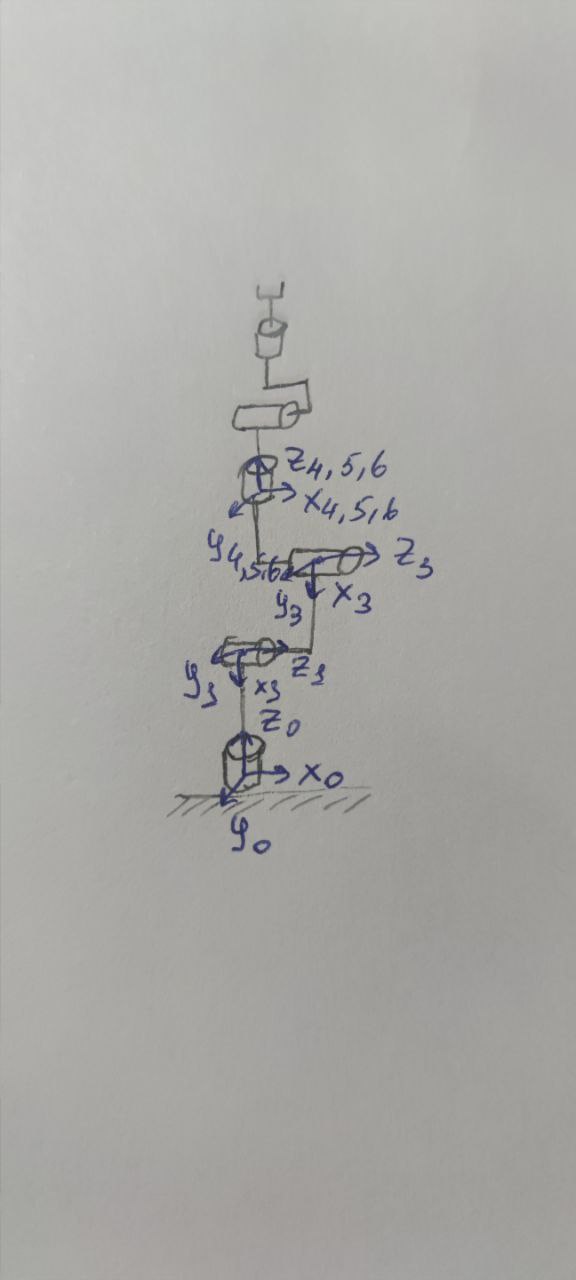 z₄,₅,₆
x₄,₅,₆
y₄,₅,₆
z₃
y₃ x₃
z₃
y₃ x₃
z₀
x₀
y₀